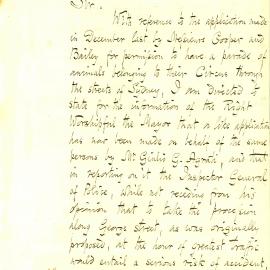 Sir,
With reference to the application made
in December last by Messieurs Cooper and
Bailey for permission to have a parade of
animals belonging to their Circus through
the streets of Sydney, I am directed to
state for the information of the Right
Worshipful the Mayor that a like application
has now been made on behalf of the same
persons by Mr G. Agrati, and that
in reporting on it the Inspector General
of Police, while not receding from his
opinion that to take the procession
along George Street, as was originally
proposed, at the hour of greatest traffic
would entail a serious risk of accident,